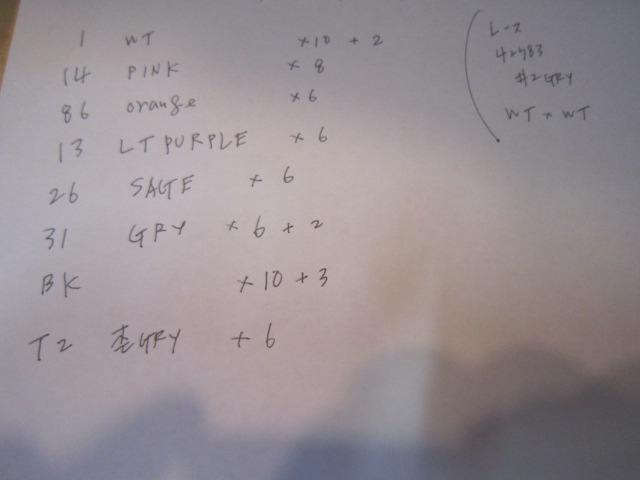 1 WT ×10 + 2
14 PINK × 8
86 orange × 6
13 LT PURPLE × 6
26 SAGE × 6
31 GRY × 6 + 2
BK ×10 + 3
T2 杢GRY + 6
42783
#2 GRY
WT × WT